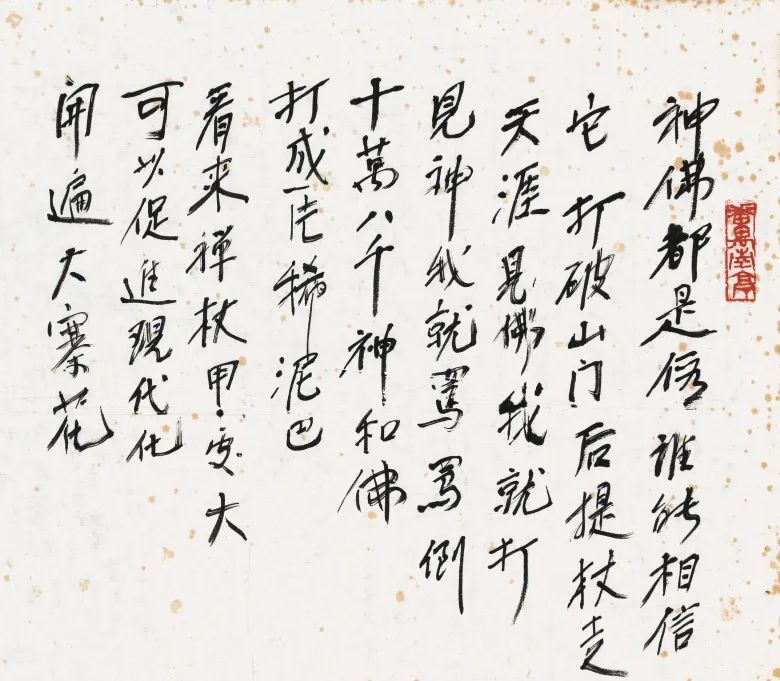 神佛都是假誰能相信
它打破山门后提杖走
天涯見佛我就打
見神我就罵罵倒
十萬八千神和佛
打成一坨稀泥巴
看来禅杖用處大
可以促進現代化
開遍大寨花